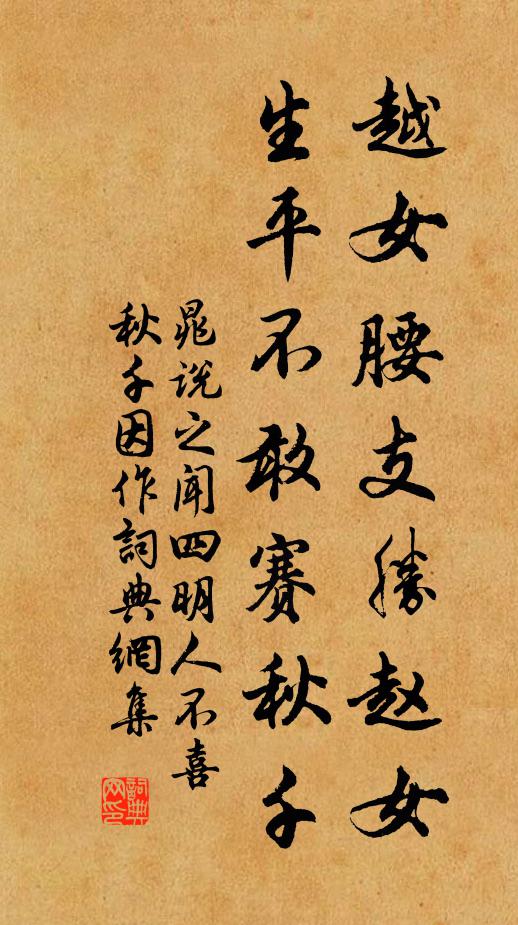 越女腰支勝赵女
生平不敢賽秋千
晁说之闻四明人不喜
秋千因作詞典網集
詞典网印